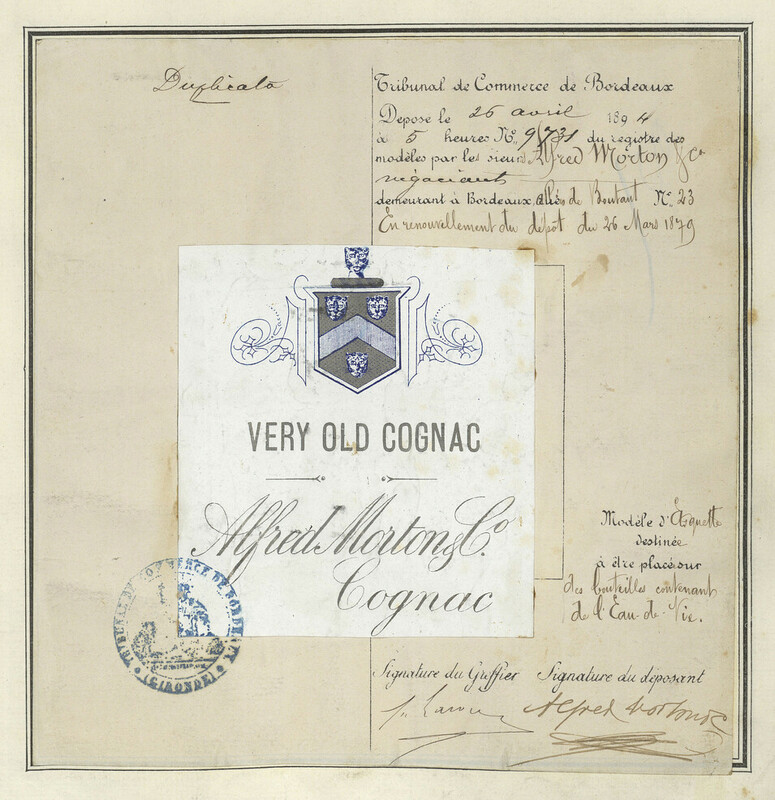 Duplicata
Tribunal de Commerce de Bordeaux
Déposé le 26 avril 1894
à 5 heures No. 9731 du registre des
modèles par les sieurs Alfred Morton & Co
négociants
demeurant à Bordeaux, Allées de Boutaut No. 23
En renouvellement du dépôt du 26 Mars 1879
VERY OLD COGNAC
Alfred Morton & Co.
Cognac
Modèle d'Etiquette
destinée
à être placé sur
des bouteilles contenant
de l'Eau-de-Vie.
TRIBUNAL DE COMMERCE DE BORDEAUX
(GIRONDE)
Signature du Greffier Signature du déposant
Alfred Morton & Co